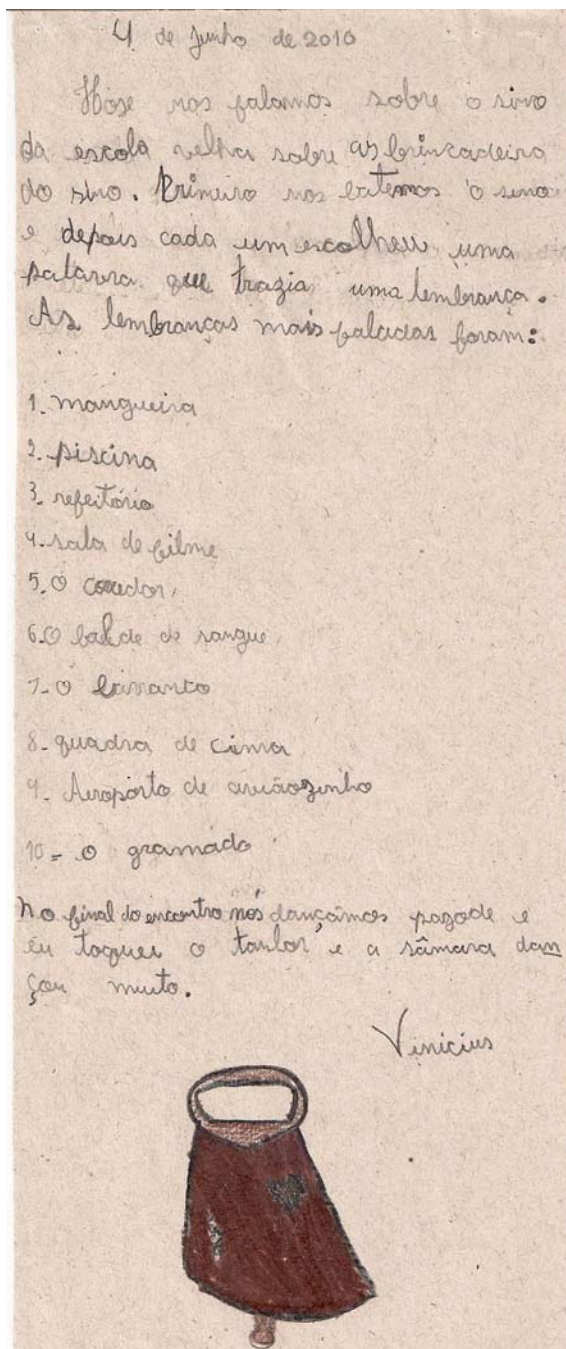 4 de Junho de 2010
Hose nos falamos sobre o sino
da escola velha sobre as brincadeira
do sino. Primeiro nos batemos o sino
e depois cada um escolheu uma
palavra que trazia uma lembrança.
As lembranças mais faladas foram:
1. mangueira
2. piscina
3. refeitório
4. sala de filme
5. O corredor
6. O balde de sangue
7. O barranco
8. quadra de cima
9. Aeroporto de aviãozinho
10 = o gramado
No final do encontro nós dançamos pagode e
eu toquei o tanbor e a sâmara dan
çou muito.
Vinicius